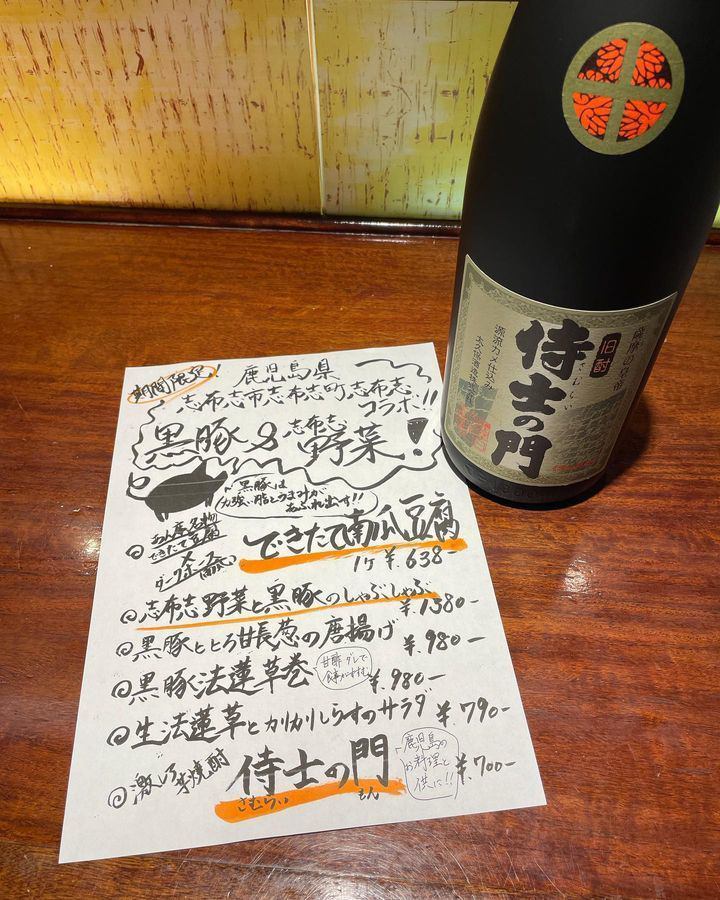 期間限定!
鹿児島県
志布志市志布志町志布志
コラボ!!
黒豚&志布志野菜!
黒豚は
力強い脂とうまみが
あふれ出す!!
◎
できたて豆腐
×
できたて南瓜豆腐
1ケ ¥.638-
◎志布志野菜と黒豚のしゃぶしゃぶ
¥1380-
◎黒豚ととろ甘長葱の唐揚げ ¥.980-
◎黒豚法蓮草巻 ¥.980-
甘酢ダレで
食事がすすむ
◎生法蓮草とカリカリしらすのサラダ ¥.790-
◎激レア芋焼酎 侍士の門 ¥.700-
さむらい もん
鹿児島の
お料理と
供に!!
薩摩の皇帝
旧酎
侍士の門
さむらい
源流カメ仕込み
大久保酒造